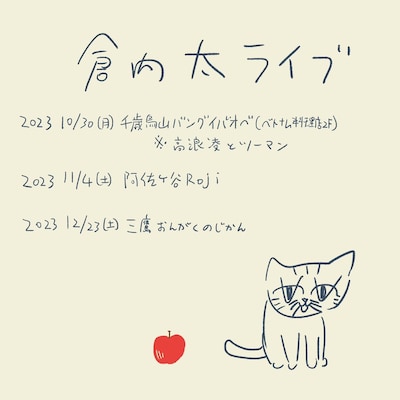 倉内 太 ライブ
2023 10/30(月) 千歳烏山バングイバオベ(ベトナム料理店2F)
※高浪凌とツーマン
2023 11/4(土) 阿佐ヶ谷Roji
2023 12/23(土) 三鷹おんがくのじかん